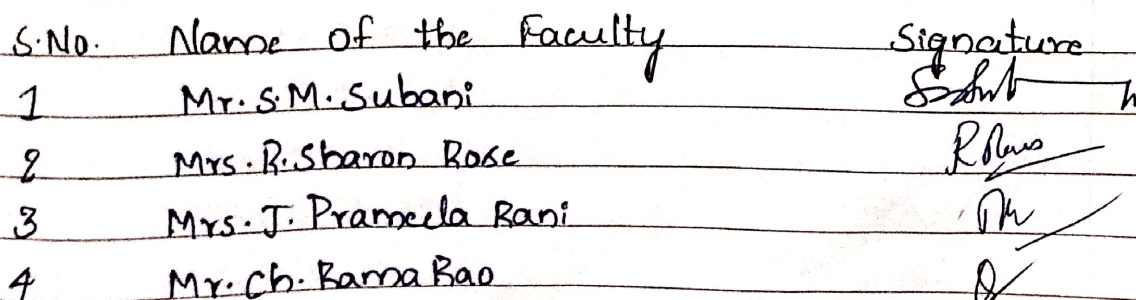 S.No. Name of the Faculty Signature
1 Mr. S.M. Subani
2 Mrs. R. Sharon Rose
3 Mrs. J. Prameela Rani
4 Mr. Ch. Rama Rao